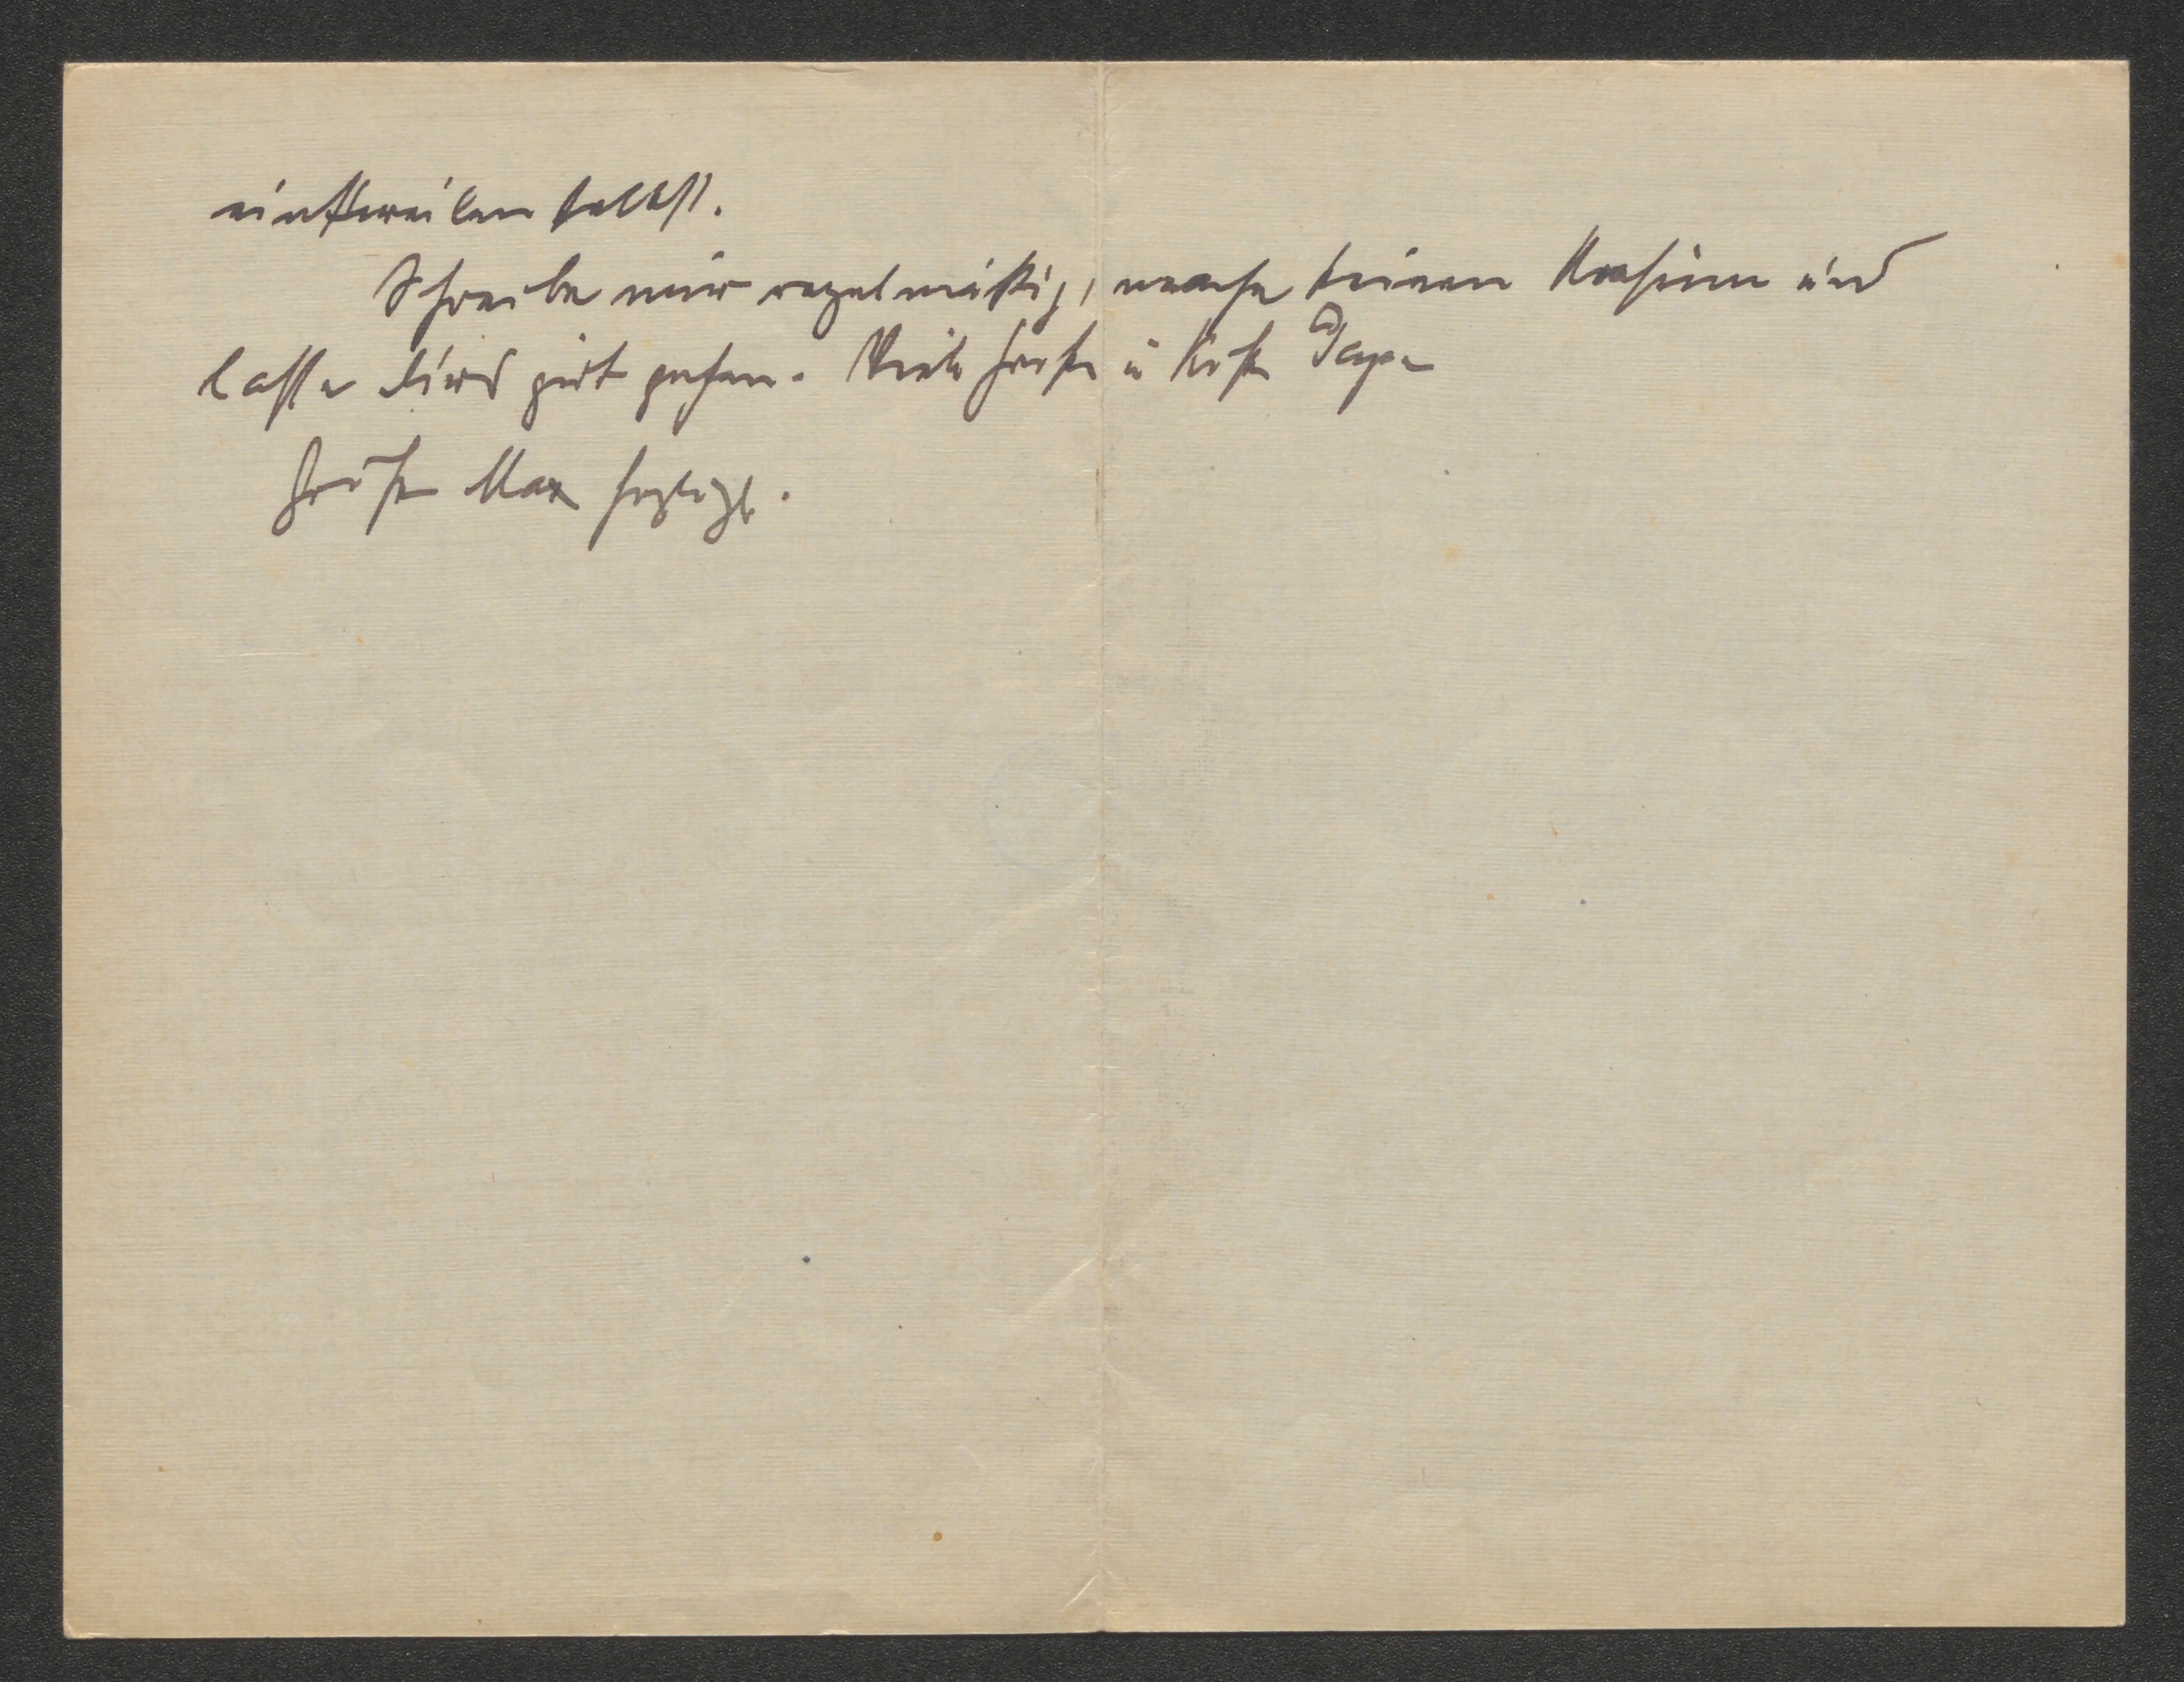 einstweilen selbst.
Schreibe mir regelmäßig, mache keinen Unsinn und
lasse Dirs gut gehen. Viele Grüße u Küsse Papa
Grüße Max herzlichst.